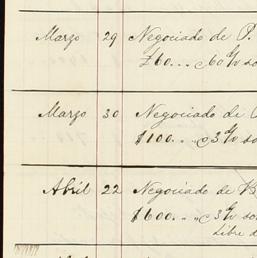 Marzo 29 Negociado de P.
£60... c/60 d/v so
Marzo 30 Negociado de
$100... c/3 d/v so
Abril 22 Negociado de B
$600... c/3 d/v so
Libre d